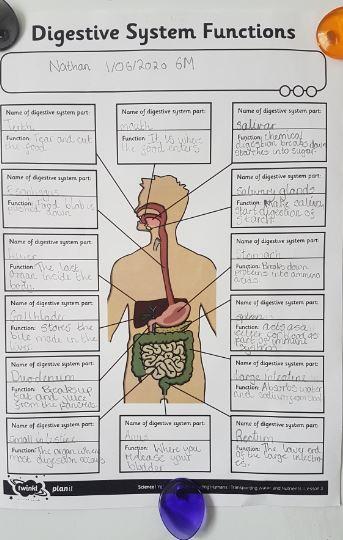 Digestive System Functions
Nathan 1/06/2020 6M
Name of digestive system part:
Teeth
Function: Tear and cut
the food.
Name of digestive system part:
mouth
Function: It is where
the food enters
Name of digestive system part:
salivar
Function: chemical
digestion breaks down
starches into sugar.
Name of digestive system part:
Esophagus
Function: Food blob is
pushed down
Name of digestive system part:
Salivary glands
Function: Make saliva,
start digestion of
starch
Name of digestive system part:
Liver
Function: The last
organ inside the
body.
Name of digestive system part:
Stomach
Function: Breaks down
proteins into amino
acids
Name of digestive system part:
Gallbladder
Function: Stores the
bile made in the
liver.
Name of digestive system part:
Function: acts as a
part of immune
system
Name of digestive system part:
Duodenum
Function: Breaks up
fat and juice
from the pancreas.
Name of digestive system part:
Large intestine
Function: Absorbs water
and
Name of digestive system part:
small intestine
Function: The organ where
most digestion occurs
Name of digestive system part:
Anus
Function: Where you
release your
bladder
Name of digestive system part:
Rectum
Function: The lower end
of the large
twinkl planit
Science